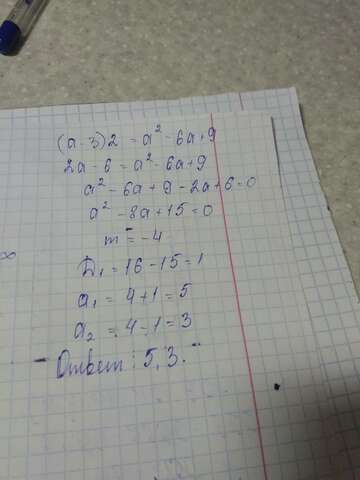 (a-3)2 = a² - 6a + 9
2a - 6 = a² - 6a + 9
a² - 6a + 9 - 2a + 6 = 0
a² - 8a + 15 = 0
m = -4
D₁ = 16 - 15 = 1
a₁ = 4 + 1 = 5
a₂ = 4 - 1 = 3
Ответ: 5, 3.